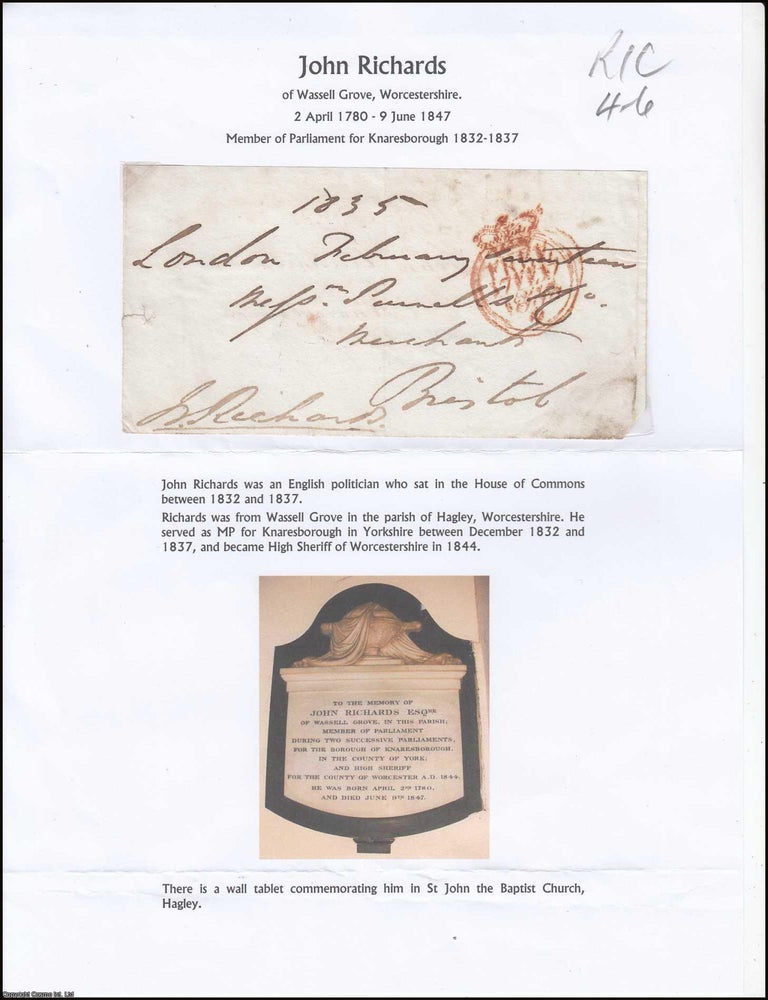 John Richards
RIC
of Wassell Grove, Worcestershire.
4-6
2 April 1780 - 9 June 1847
Member of Parliament for Knaresborough 1832-1837
1835
London February seventeen
Messrs. Co.
Merchants
Bristol
J. Richards.
John Richards was an English politician who sat in the House of Commons
between 1832 and 1837.
Richards was from Wassell Grove in the parish of Hagley, Worcestershire. He
served as MP for Knaresborough in Yorkshire between December 1832 and
1837, and became High Sheriff of Worcestershire in 1844.
TO THE MEMORY OF
JOHN RICHARDS ESQRE
OF WASSELL GROVE, IN THIS PARISH;
MEMBER OF PARLIAMENT
DURING TWO SUCCESSIVE PARLIAMENTS,
FOR THE BOROUGH OF KNARESBOROUGH,
IN THE COUNTY OF YORK;
AND HIGH SHERIFF
FOR THE COUNTY OF WORCESTER A.D. 1844.
HE WAS BORN APRIL 2ND 1780,
AND DIED JUNE 9TH 1847.
There is a wall tablet commemorating him in St John the Baptist Church,
Hagley.
Copyright Cosmo Int. Ltd